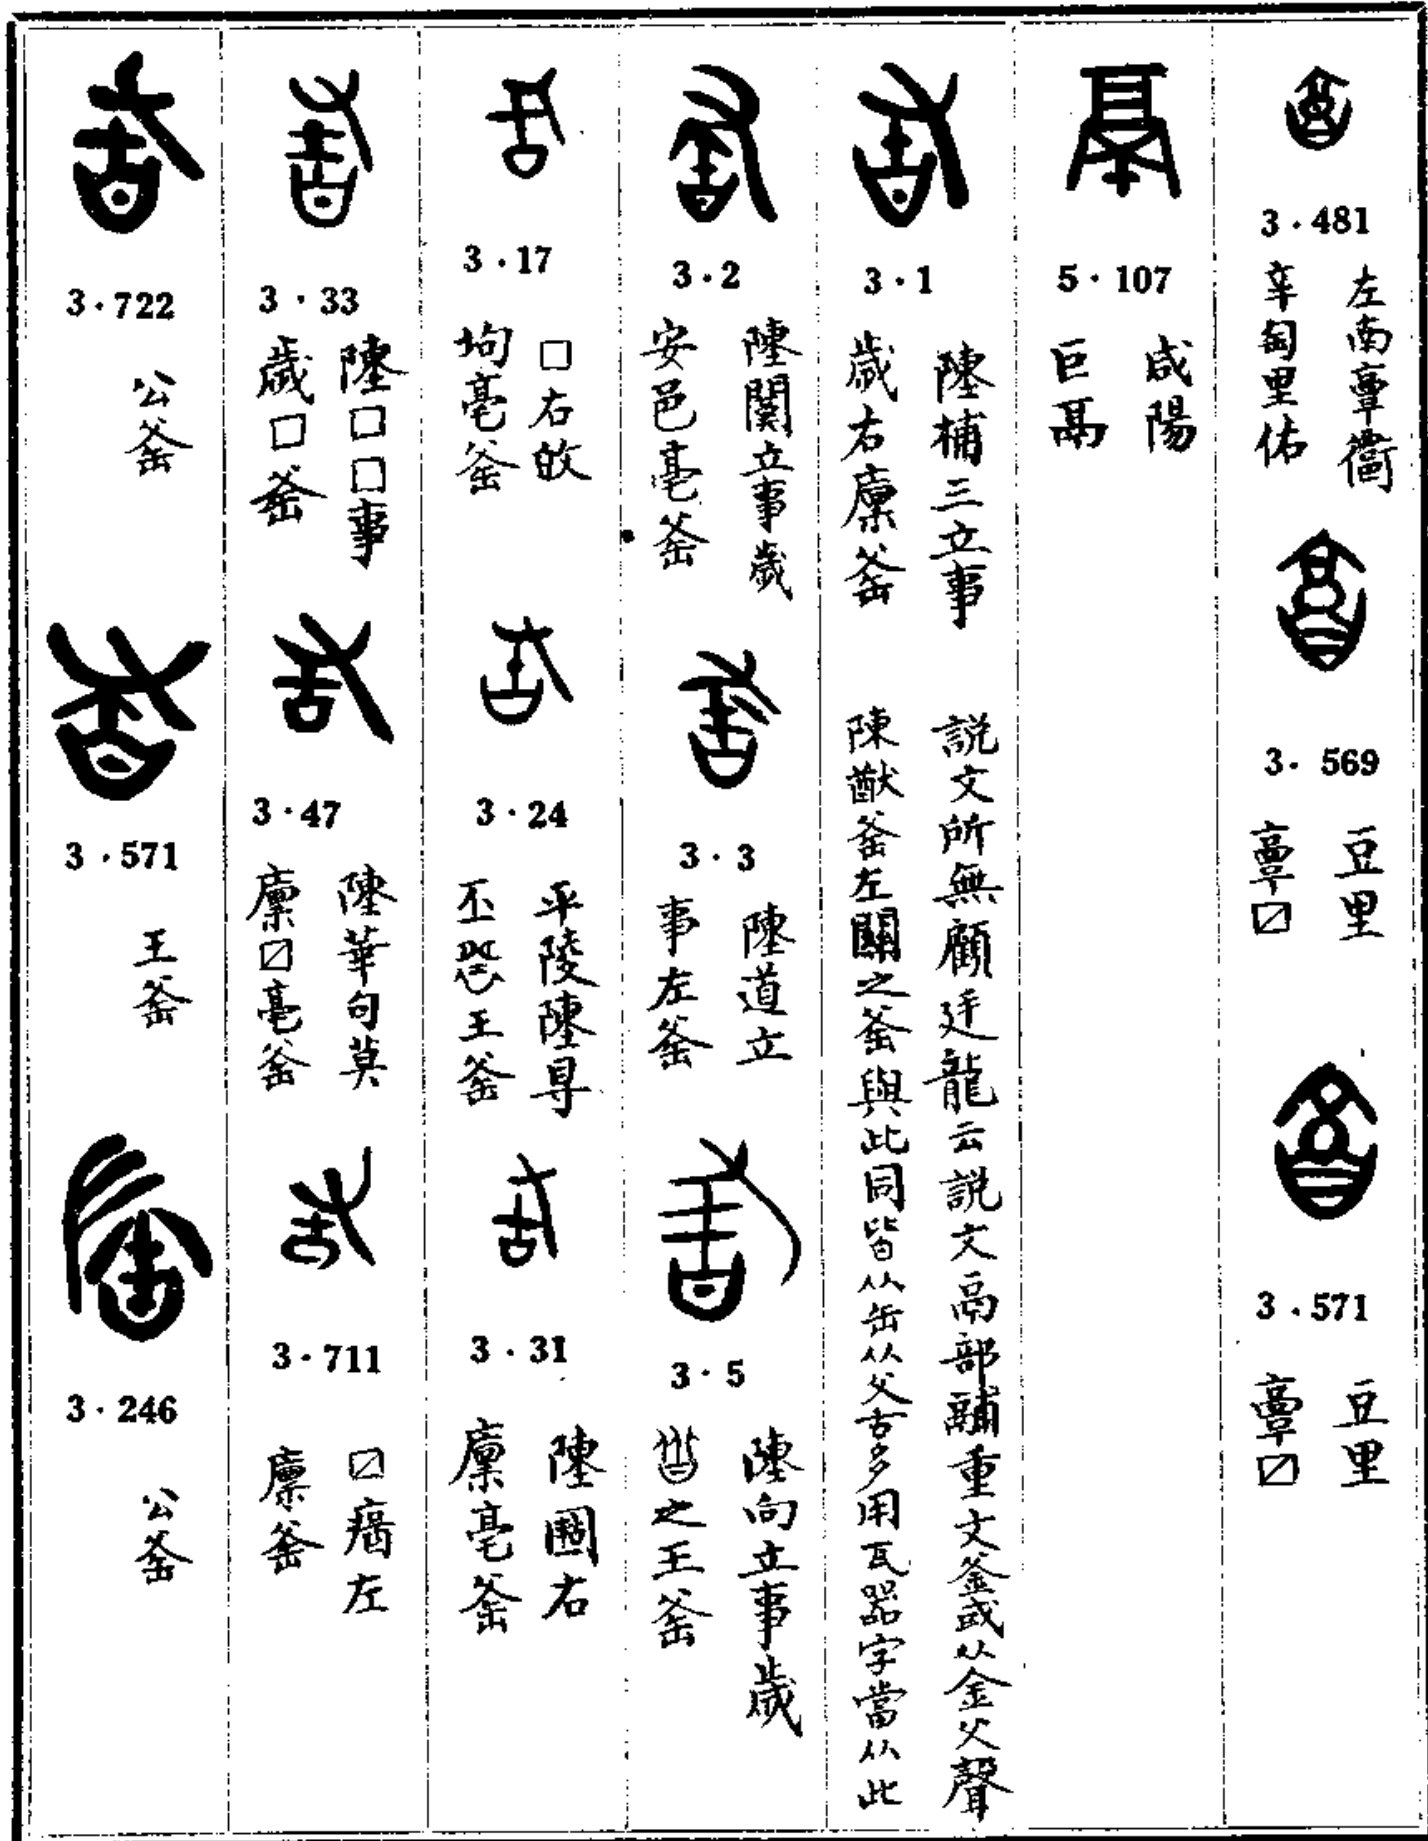 3·481
左南𩫖衢
辛匋里佑
3·569
豆里
𩫖☐
3·571
豆里
𩫖☐
5·107
咸陽
巨鬲
3·1
陳楠三立事
歲右廩釜
説文所無顧廷龍云説文鬲部䰙重文釜或从金父聲
陳猷釜左關之釜與此同皆从缶从父古多用瓦器字當从此
3·2
立事歲
安邑亳釜
3·3
陳道立
事左釜
3·5
陳向立事歲
之王釜
3·17
□右㪃
坸亳釜
3·24
平陵陳㝵
丕王釜
3·31
陳固右
廩亳釜
3·33
陳□□事
歲□釜
3·47
陳華句莫
廩☐亳釜
3·711
☐左
廩釜
3·722
公釜
3·571
王釜
3·246
公釜